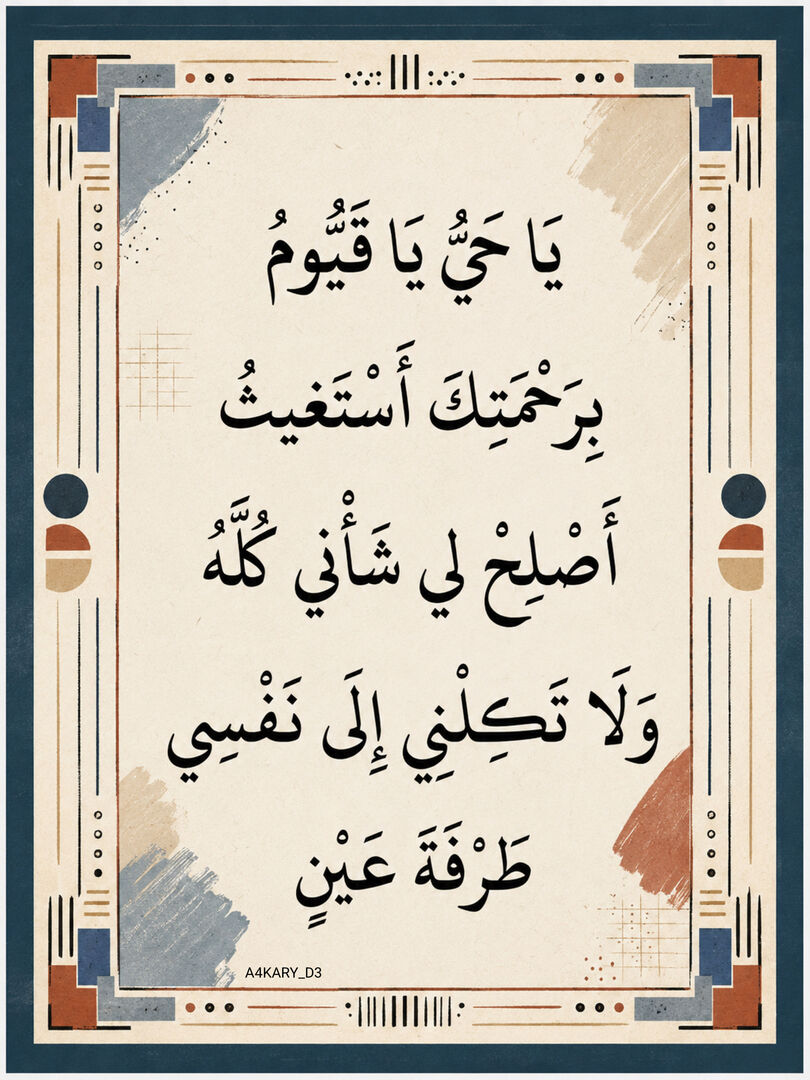 يَا حَيُّ يَا قَيُّومُ
بِرَحْمَتِكَ أَسْتَغيثُ
أَصْلِحْ لي شَأْني كُلَّهُ
وَلَا تَكِلْنِي إِلَى نَفْسِي
طَرْفَةَ عَيْنٍ
A4KARY_D3